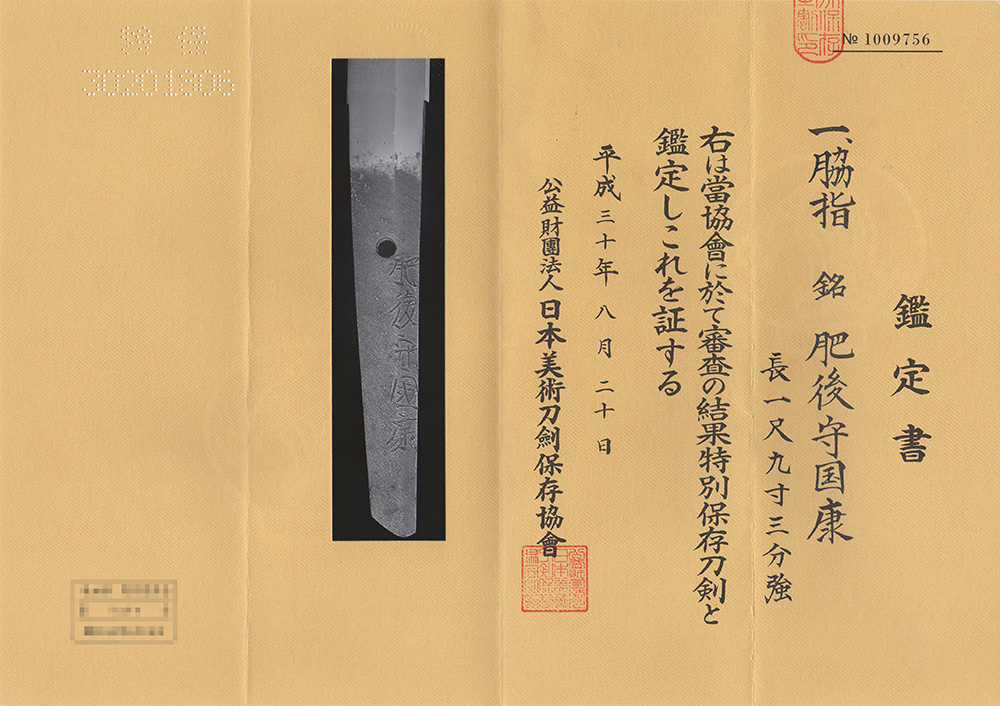 № 1009756
鑑定書
一、脇指 銘 肥後守国康
長一尺九寸三分強
右は當協會に於て審査の結果特別保存刀剣と
鑑定しこれを証する
平成三十年八月二十日
公益財團法人 日本美術刀劍保存協會
肥後守國康
特保
30201806